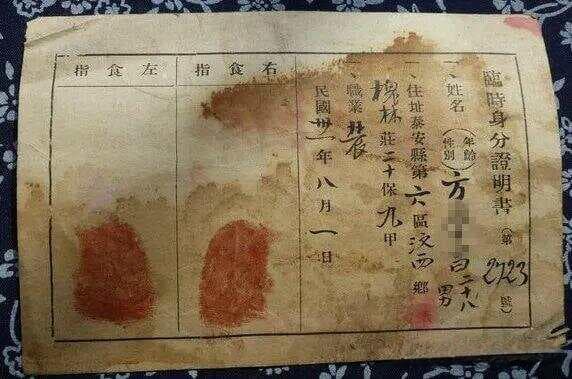 臨時身分證明書(第2723號)
一、姓名(年齡性別)方二十八男
一、住址泰安縣第六區汶西鄉
槐林莊二十保九甲
一、職業農
民國卅一年八月一日
右食指
左食指